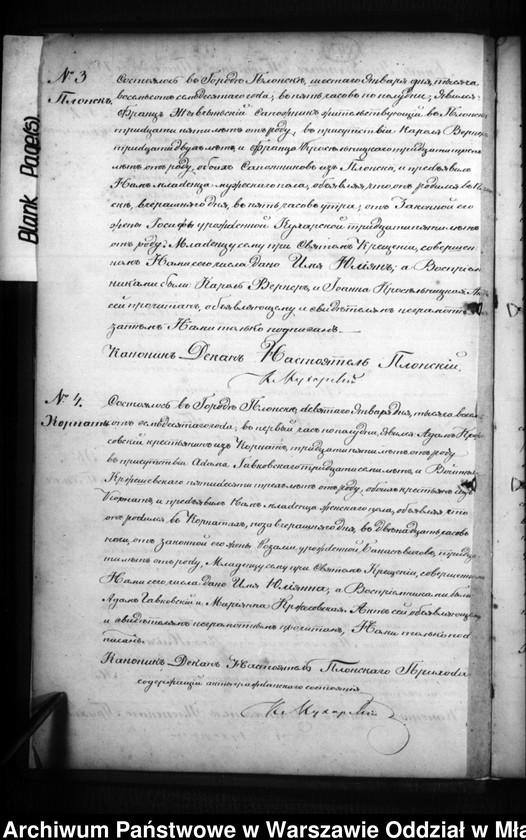 Blank Page(s)
№ 3
Плонскъ.
Состоялось въ Городѣ Плонскѣ, шестаго Января дня, тысяча
восемьсотъ семьдесятаго года; въ пять часовъ по полудни; явился
Францъ сапожникъ жительствующій въ Плонскѣ
тридцати пяти лѣтъ отъ роду, въ присутствіи Кароля Вернера
тридцати двухъ лѣтъ и Франца тридцати
лѣтъ отъ роду, обоихъ Сапожниковъ изъ Плонска, и предъявилъ
Намъ младенца мужескаго пола, объявляя что онъ родился въ
вчерашняго дня, въ пять часовъ утра; отъ Законной его
жены Іосифы урожденной Пухарской тридцати пяти лѣтъ
отъ роду. Младенцу сему при Святомъ Крещеніи, совершен
номъ Нами сего числа дано Имя Юліянъ; а Воспріем
никами были Кароль Вернеръ, и Іоанна
сей прочитанъ, объявляющему и свидѣтелямъ неграмотнымъ
затѣмъ Нами только подписанъ.
Каноникъ Деканъ Настоятель Плонскій.
К Мухарскій
№ 4.
Корпаты
Состоялось въ Городѣ Плонскѣ, девятаго Января дня, тысяча восемь
сотъ семьдесятаго года; въ первый часъ по полудни, явился Адамъ
крестьянинъ изъ Корпатъ, тридцати пяти лѣтъ отъ роду
въ присутствіи Адама Гавковскаго тридцати семи лѣтъ, и
пятидесяти трехъ лѣтъ отъ роду, обоихъ крестьянъ изъ
Корпатъ, и предъявилъ Намъ младенца женскаго пола, объявляя что
онъ родился въ Корпатахъ, позавчерашняго дня, въ двѣнадцать часовъ
ночи, отъ законной его жены Розаліи, урожденной
лѣтъ отъ роду, Младенцу сему при Святомъ Крещеніи, совершенномъ
Нами сего числа дано Имя Юліянна; а Воспріемниками были
Адамъ Гавковскій и Марьянна Актъ сей объявляющему
и свидѣтелямъ неграмотнымъ прочитанъ, Нами только под
писанъ.
Каноникъ Деканъ Настоятель Плонскаго Прихода
содержащій акты гражданскаго состоянія
К Мухарскій
Archiwum Państwowe w Warszawie Oddział w Mła